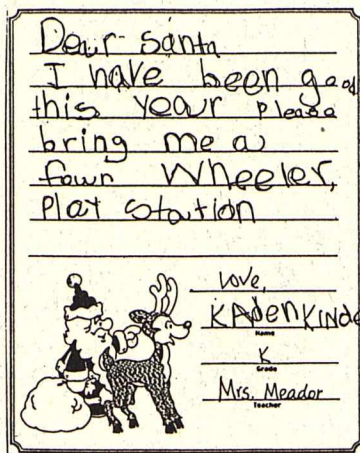 Dear santa
I have been good
this year Please
bring me a
fowr Wheeler,
Play station
Love,
KAdenKinde
Name
K
Grade
Mrs. Meador
Teacher